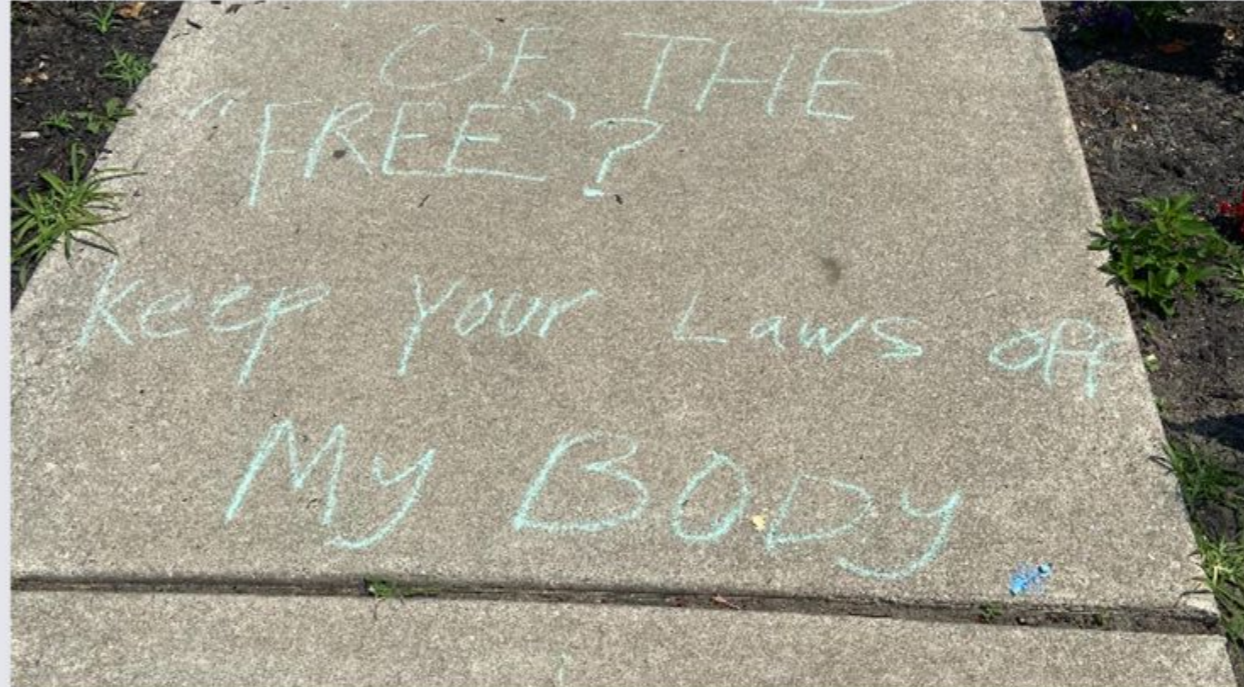 OF THE
"FREE"?
keep your Laws off
My BODY